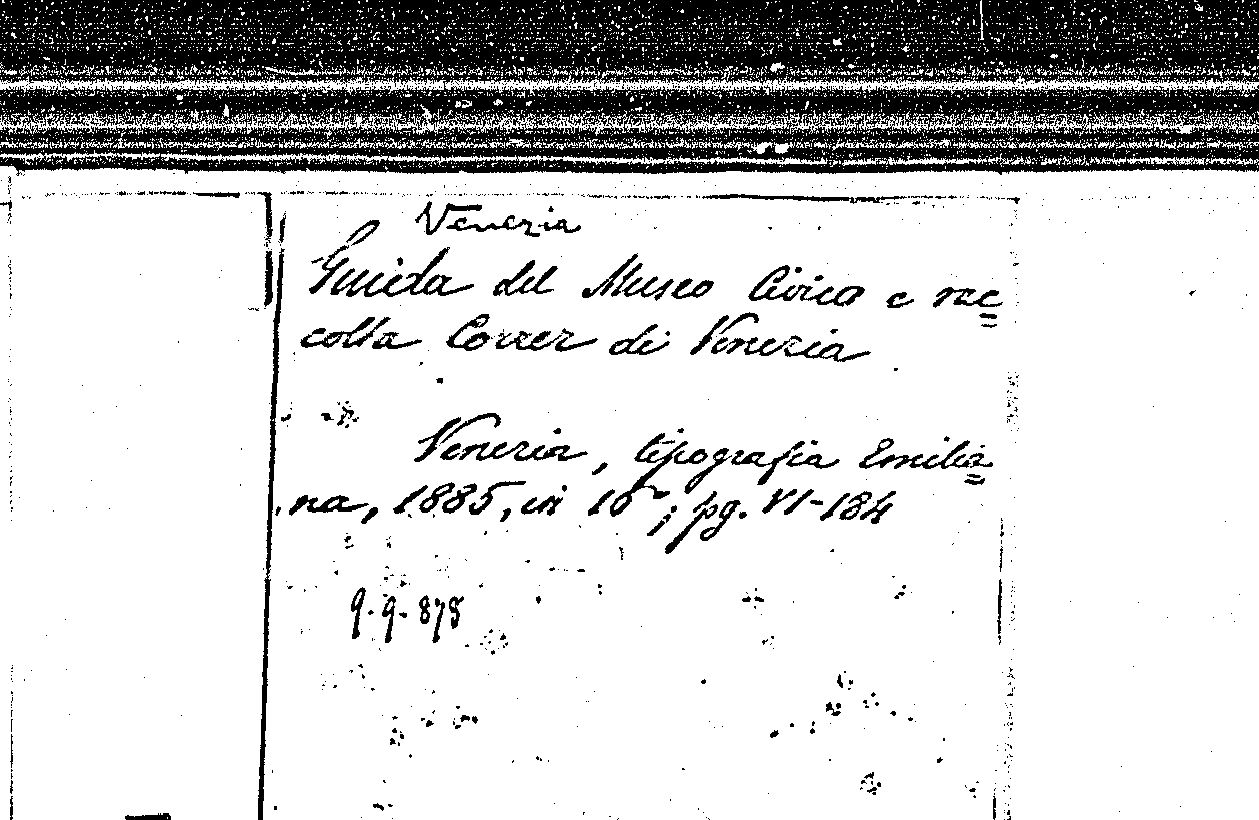 Venezia
Guida del Museo Civico e rac=
colta Correr di Venezia
Venezia, tipografia Emilia=
na, 1885, in 16°; pg. VI-184
9.9.875